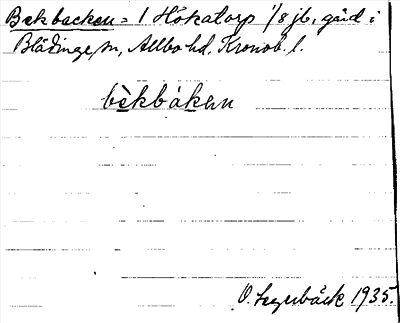 Bekbacken = 1 Hökatorp 1/8 jb., gård i
Blädinge sn, Allbo hd, Kronob. l.
bèkbákan
O. Segerbäck 1935.